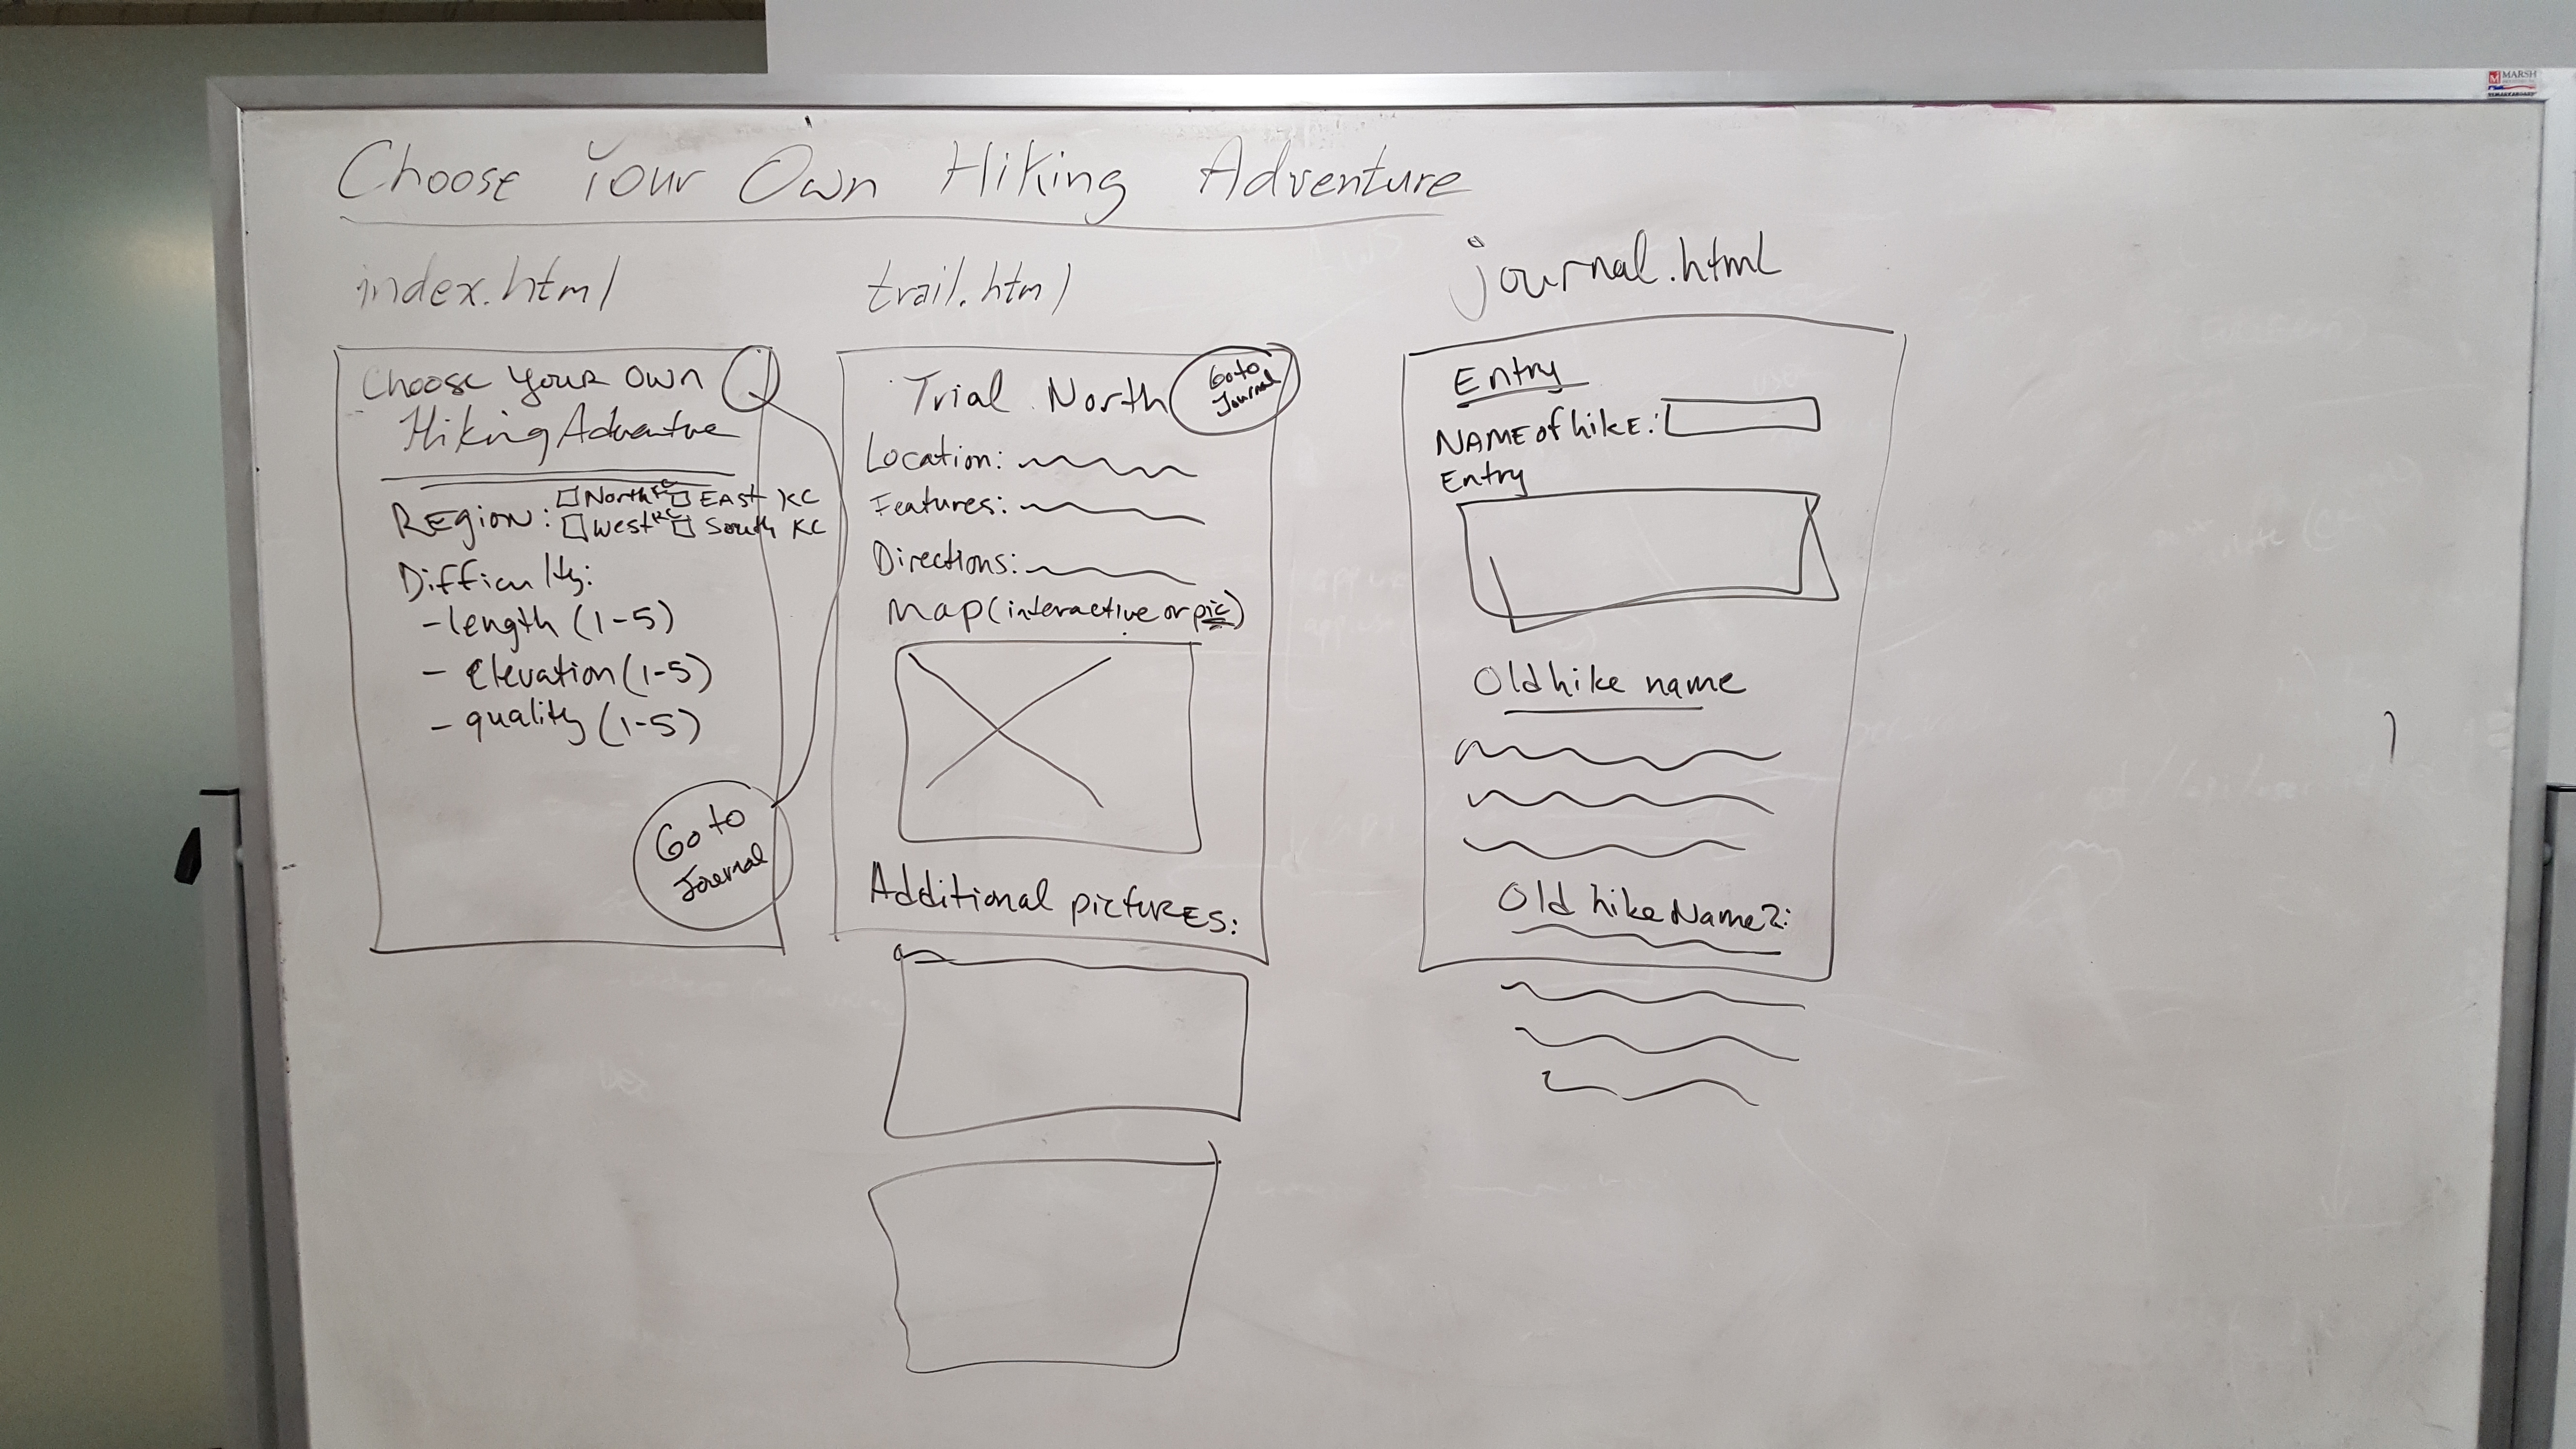 MARSH
Choose Your Own Hiking Adventure
index.html
Choose Your Own
Hiking Adventure
Region: North KC East KC
West KC South KC
Difficulty:
- length (1-5)
- Elevation (1-5)
- quality (1-5)
Go to
Journal
trail.html
Trial North
Go to
Journal
Location:
Features:
Directions:
Map (interactive or pic)
Additional pictures:
journal.html
Entry
Name of hike:
Entry
Old hike name
Old hike Name 2: